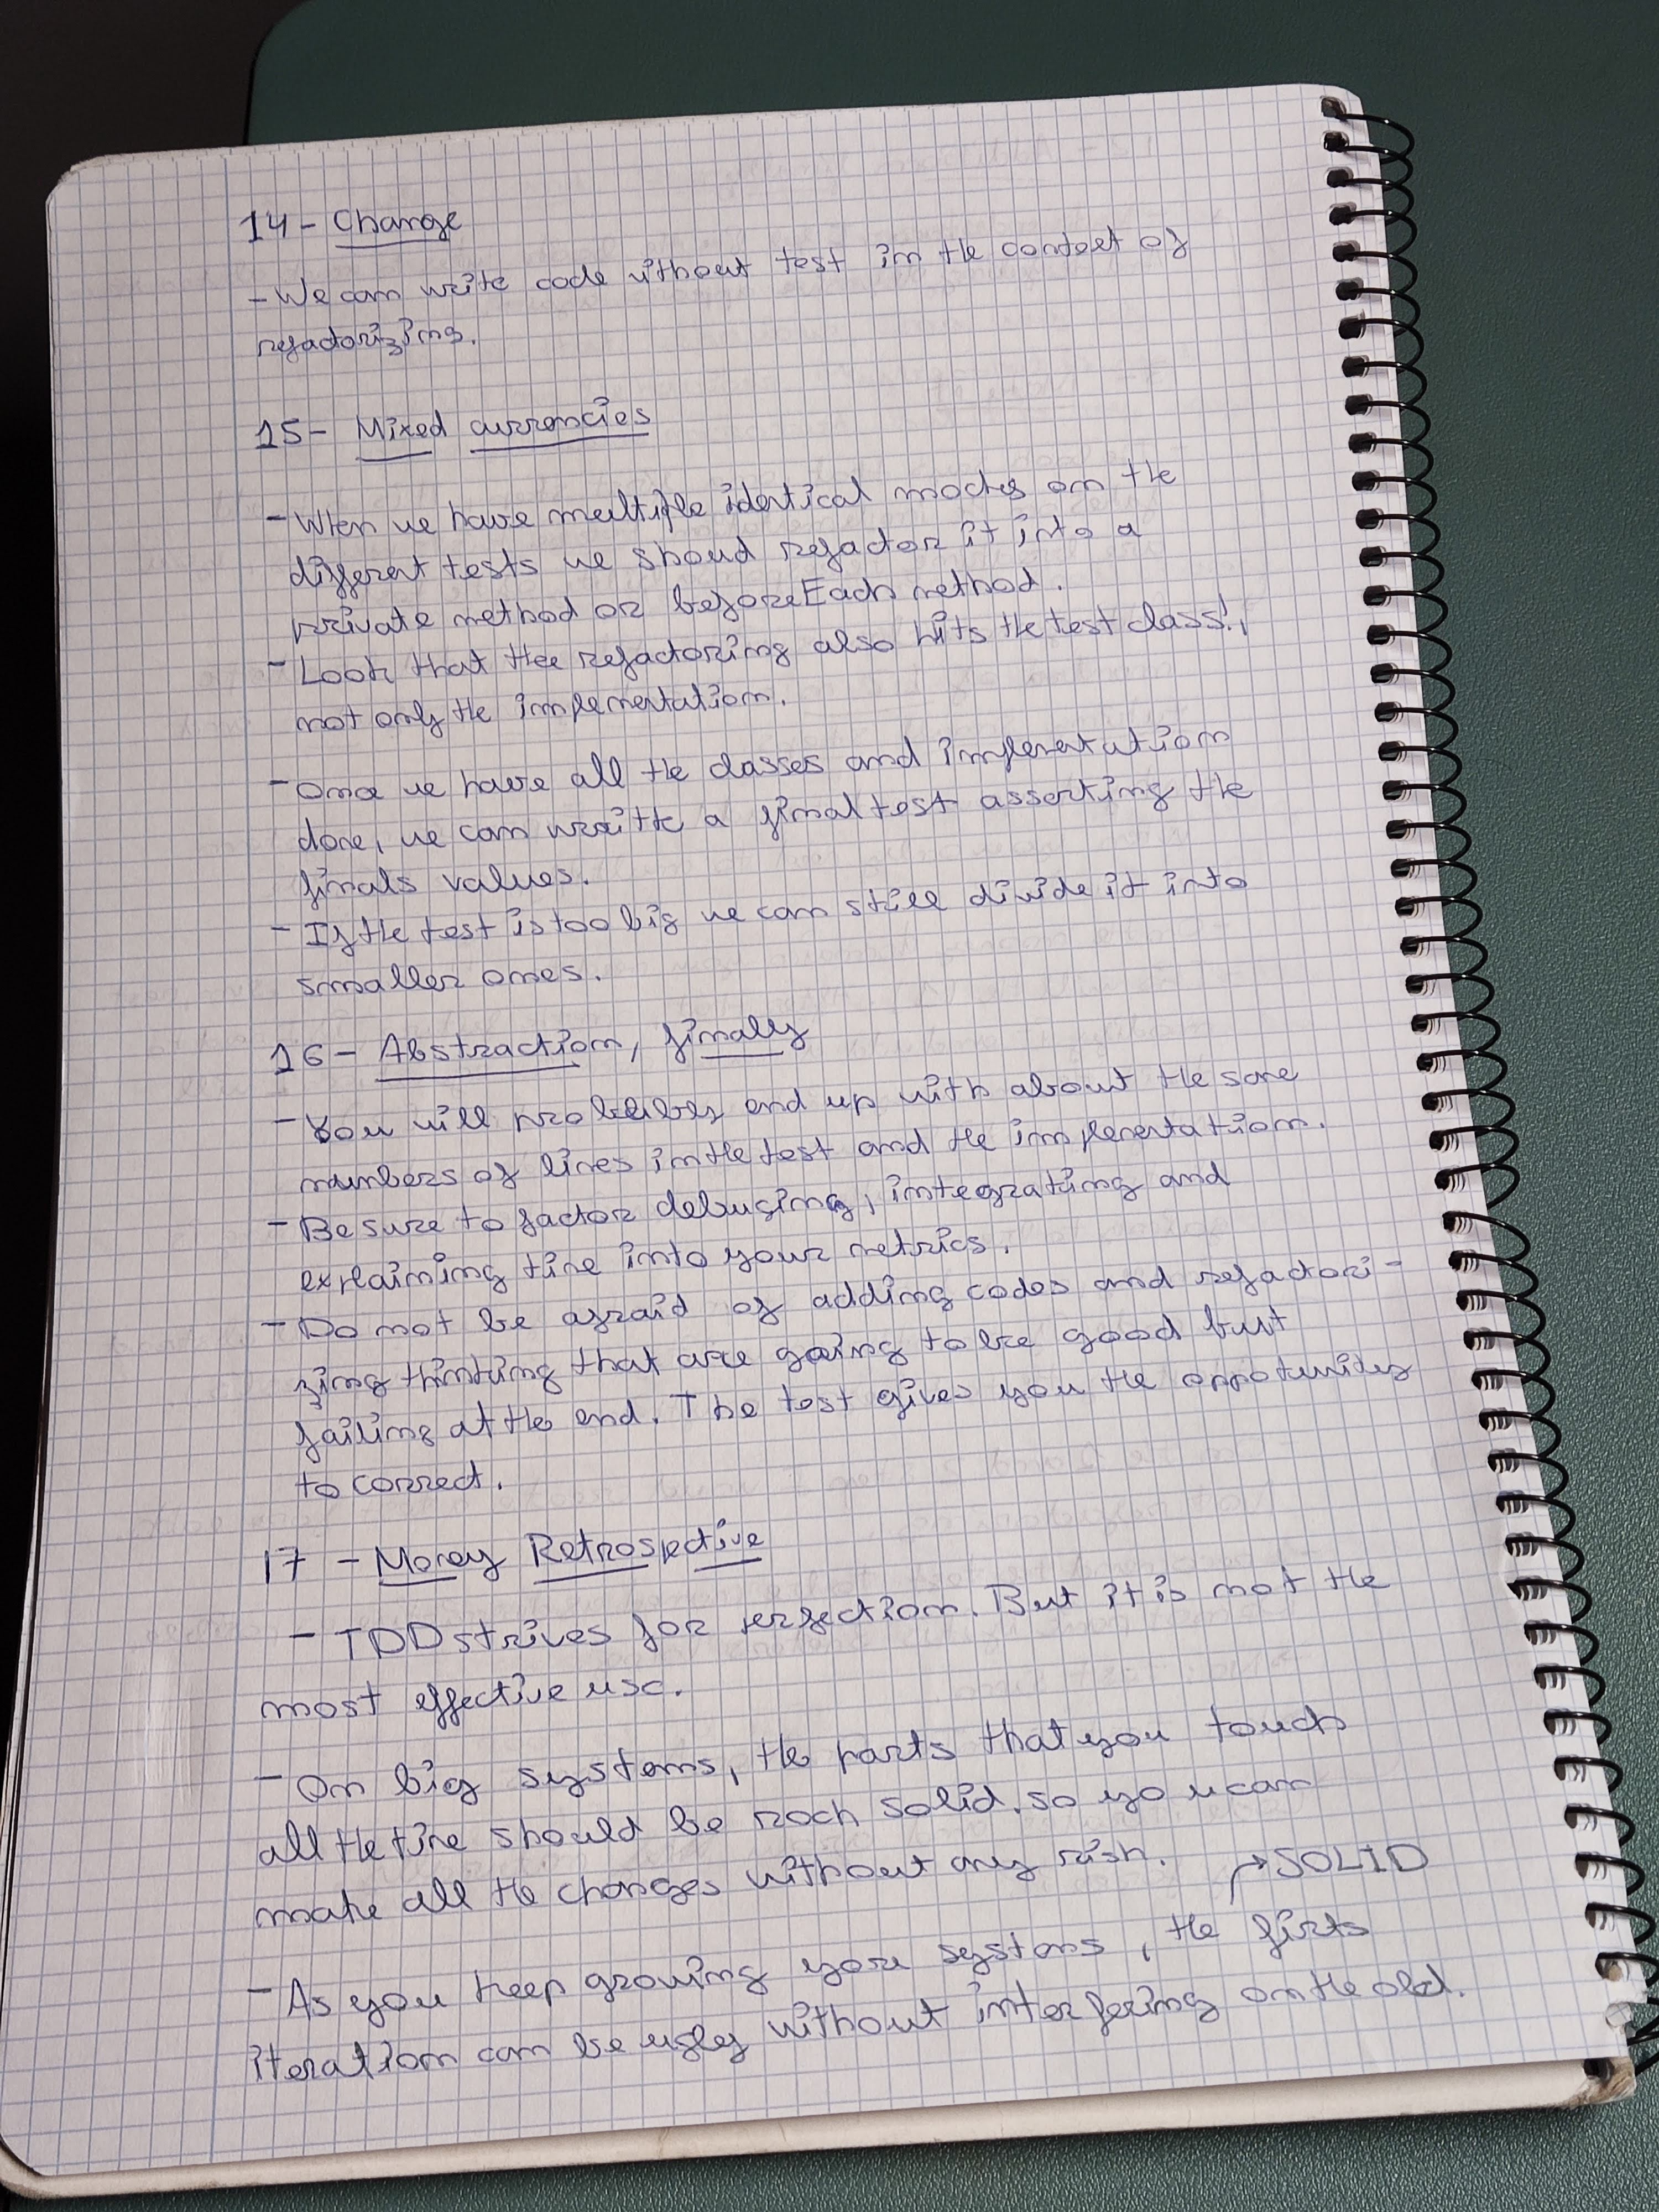 14- Change
- We can write code without test in the context of
refactorizing.
15- Mixed currencies
- When we have multiple identical mocks on the
different tests we shoud refactor it into a
private method or beforeEach method.
- Look that the refactoring also hits the test class!,
not only the implementation.
- Once we have all the classes and implementation
done, we can write a final test asserting the
finals values.
- If the test is too big we can still divide it into
smaller ones.
16- Abstraction, finally
- You will probably end up with about the same
numbers of lines in the test and the implementation.
- Be sure to factor debuging, integrating and
explaining time into your metrics.
- Do not be afraid of adding codes and refactori-
zing thinking that are going to be good but
failing at the end. The test gives you the oppotunity
to correct.
17 - Money Retrospective
- TDD strives for perfection. But it is not the
most effective use.
- On big systems, the parts that you touch
all the time should be rock solid, so you can
make all the changes without any risk.
→ SOLID
- As you keep growing your systems, the firts
iteration can be ugly without interfering on the old.